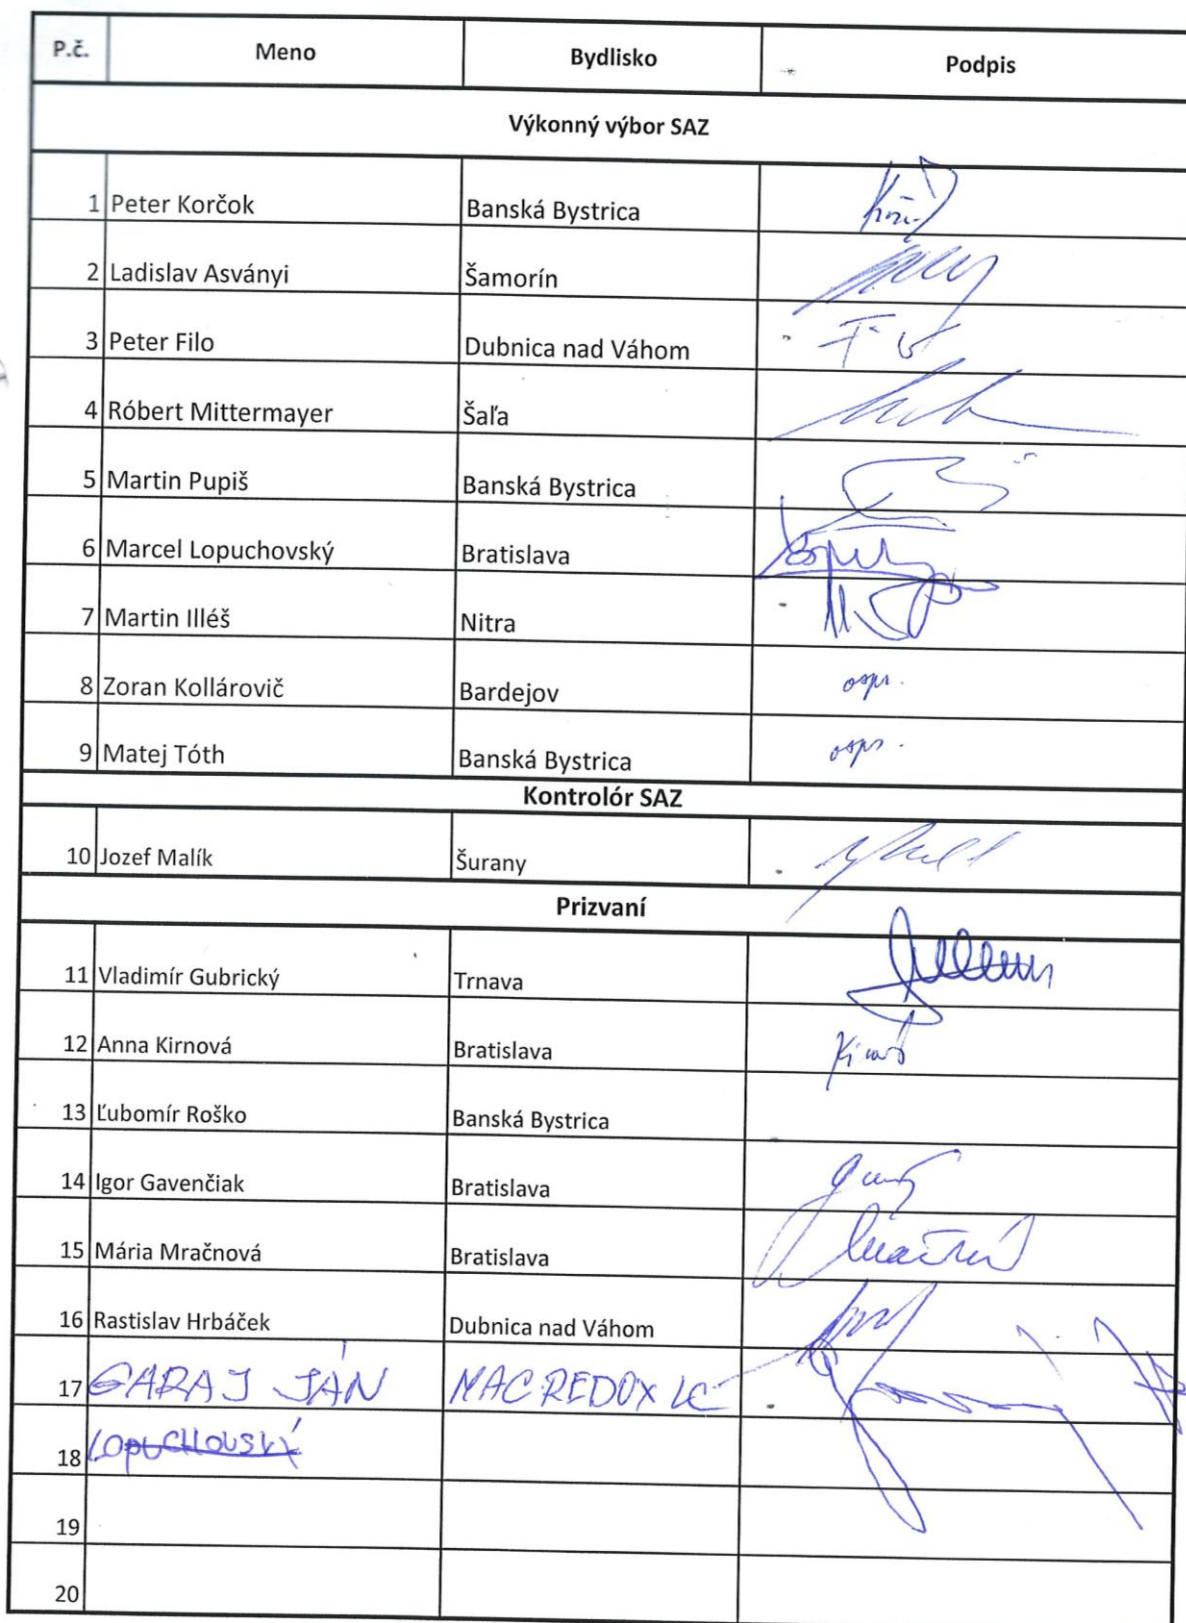 P.č. Meno Bydlisko Podpis
Výkonný výbor SAZ
1 Peter Korčok Banská Bystrica
2 Ladislav Asványi Šamorín
3 Peter Filo Dubnica nad Váhom
4 Róbert Mittermayer Šaľa
5 Martin Pupiš Banská Bystrica
6 Marcel Lopuchovský Bratislava
7 Martin Illéš Nitra
8 Zoran Kollárovič Bardejov ospr.
9 Matej Tóth Banská Bystrica ospr.
Kontrolór SAZ
10 Jozef Malík Šurany
Prizvaní
11 Vladimír Gubrický Trnava
12 Anna Kirnová Bratislava
13 Ľubomír Roško Banská Bystrica
14 Igor Gavenčiak Bratislava
15 Mária Mračnová Bratislava
16 Rastislav Hrbáček Dubnica nad Váhom
17 GARAJ JÁN MAC REDOX LC
18 LOPUCHOVSKÝ
19
20